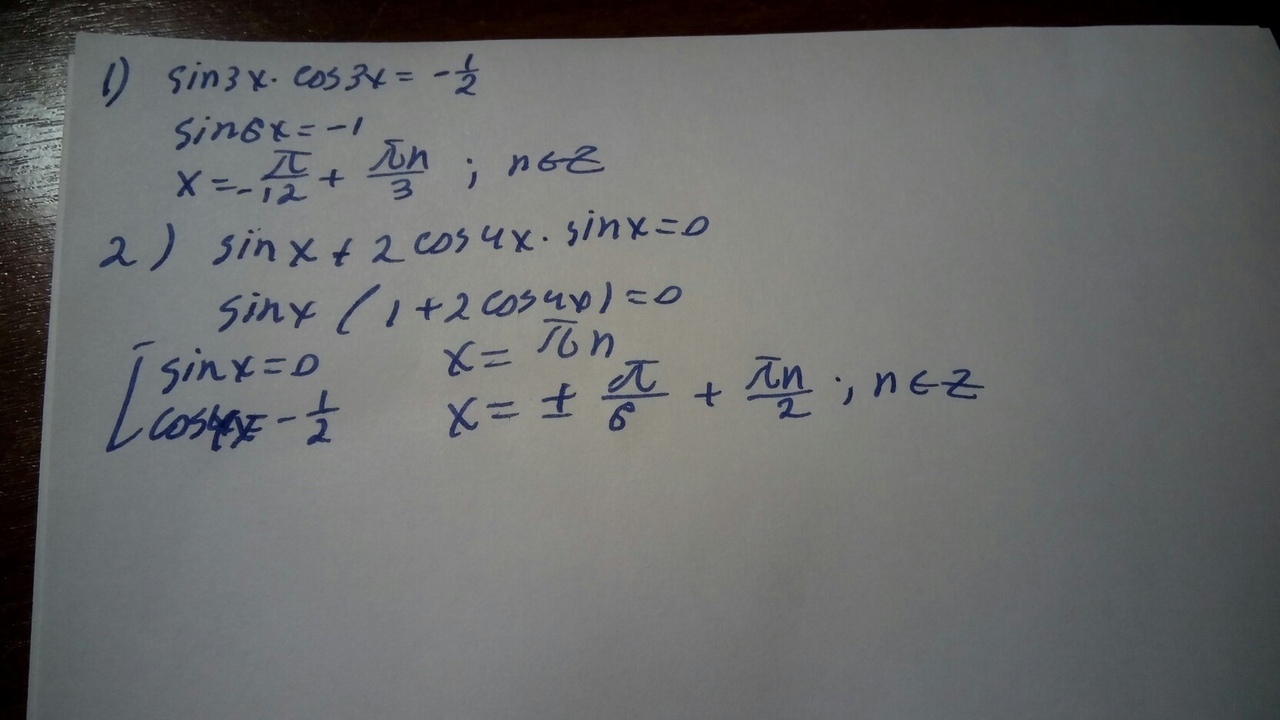 1) sin3x · cos3x = -1/2
sin6x = -1
x = -π/12 + πn/3 ; n∈Z
2) sinx + 2cos4x · sinx = 0
sinx (1 + 2cos4x) = 0
[ sinx = 0 x = πn
cos4x = -1/2 x = ± π/6 + πn/2 ; n∈Z